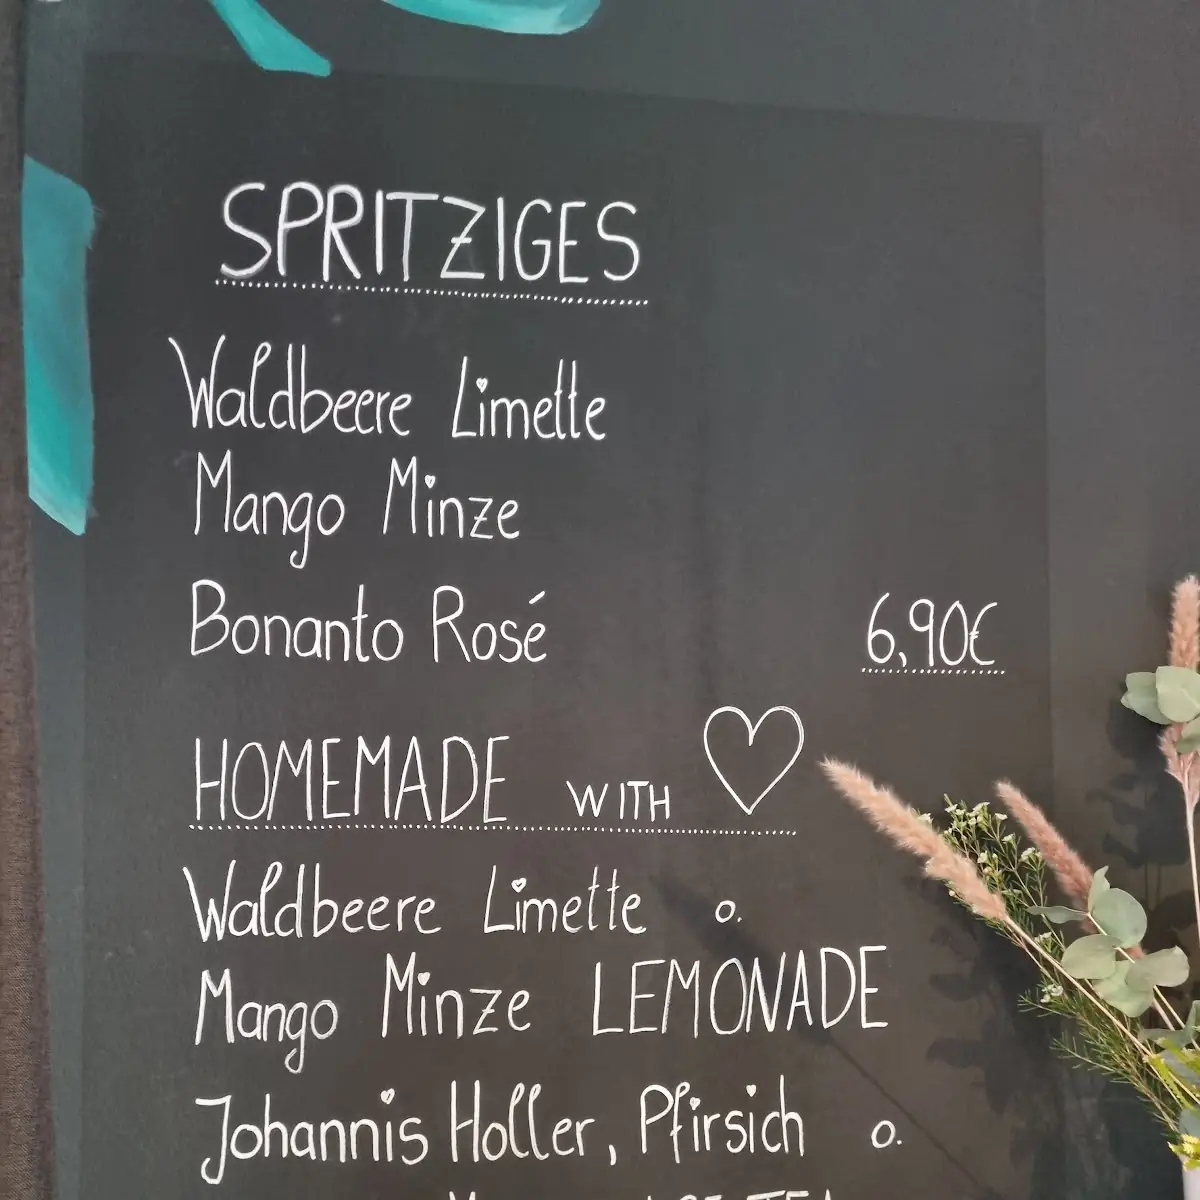 SPRITZIGES
Waldbeere Limette
Mango Minze
Bonanto Rosé 6,90€
HOMEMADE WITH
Waldbeere Limette o.
Mango Minze LEMONADE
Johannis Holler, Pfirsich o.